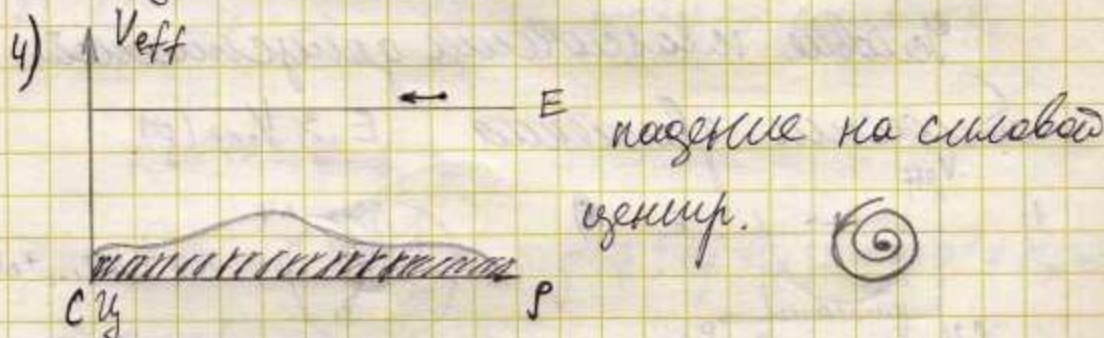 4) Veff
E
падение на силовой
центр.
СЦ ρ